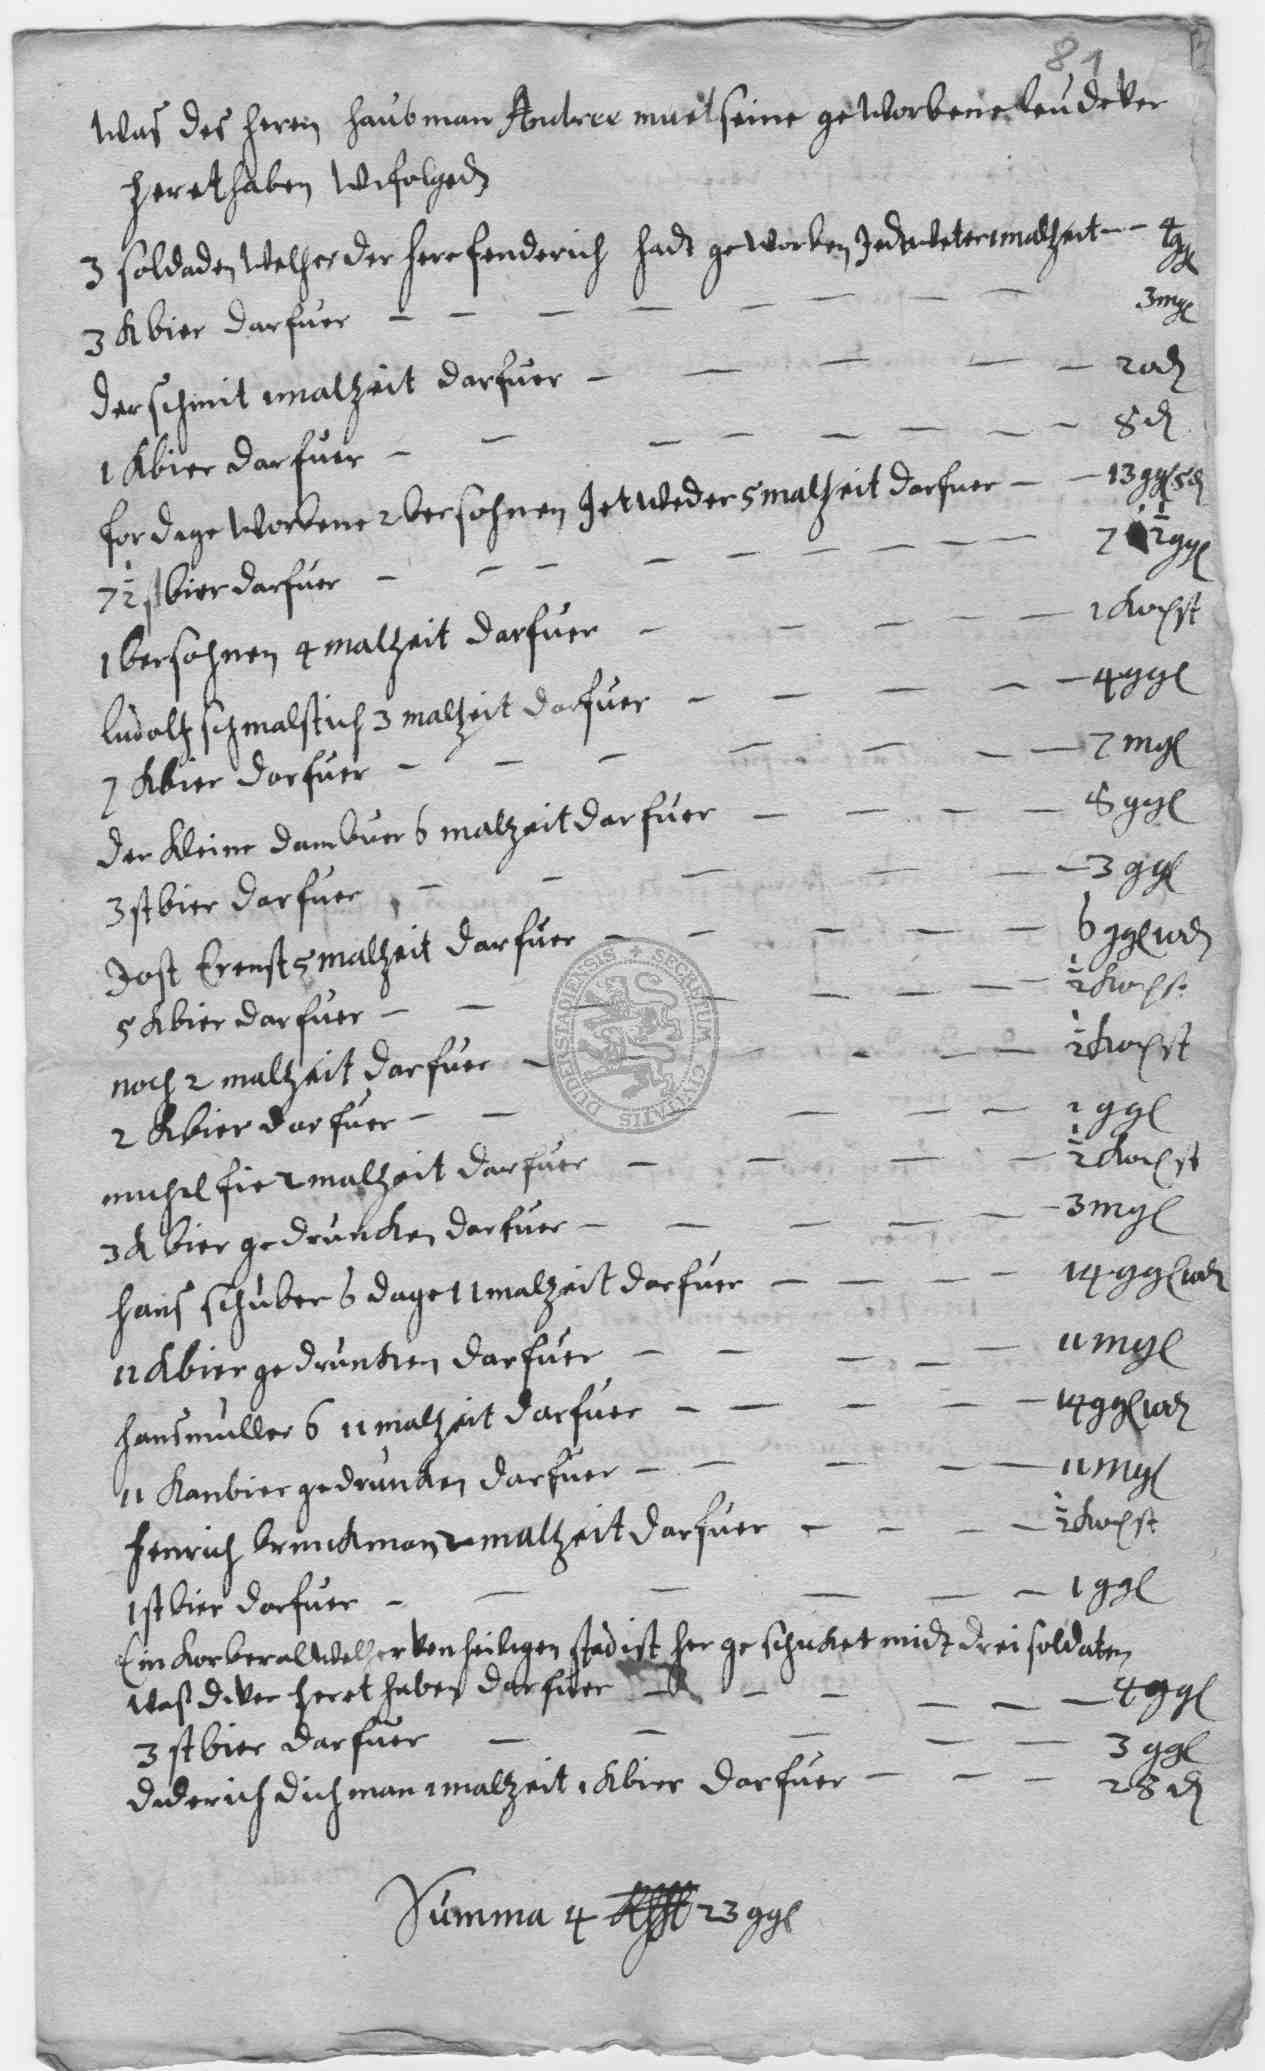 81
Was des heren haubman Andree muel seine geworbene leude ver
zeret haben wi folged
3 soldaden welher der here fenderich hadt geworben Jedweter 1 malzeit 4 ggl
3 K bier darfuer 3 mgl
der schmit 1 malzeit darfuer 20 d
1 K bier darfuer 8 d
for dage worbene 2 bersohnen Jetweder 5 malzeit darfuer 13 ggl 5 d
7 1/2 st bier darfuer 7 1/2 ggl
1 bersohnen 4 malzeit darfuer 1 Kopst
ludolf schmalstich 3 malzeit darfuer 4 ggl
7 K bier darfuer 7 mgl
der kleine dambuer 6 malzeit darfuer 8 ggl
3 st bier darfuer 3 ggl
Jost Ernst 5 malzeit darfuer 6 ggl 10 d
5 K bier darfuer 1/2 Kopst
noch 2 malzeit darfuer 1/2 Kopst
2 K bier darfuer 2 ggl
michel fie 2 malzeit darfuer 1/2 Kopst
3 K bier gedruncken darfuer 3 mgl
hans schuber 6 dage 11 malzeit darfuer 14 ggl 10 d
11 K bier gedruncken darfuer 11 mgl
hans muller 6 11 malzeit darfuer 14 ggl 10 d
11 Kan bier gedruncken darfuer 11 mgl
henrich brinckman 2 malzeit darfuer 1/2 Kopst
1 st bier darfuer 1 ggl
Ein Korberal welher von heiligen stad ist her geschicket midt drei soldaten
waß di ver zeret haben darfuer 4 ggl
3 st bier darfuer 3 ggl
diderich dichman 1 malzeit 1 K bier darfuer 28 d
Summa 4 23 ggl
SECRETUM CIVITATIS DUDERSTADIENSIS